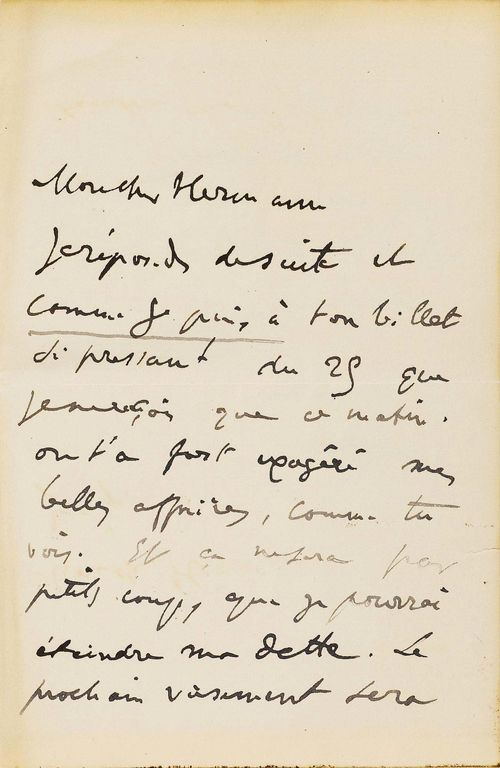 Mon cher Hermann
Je réponds de suite et
comme je puis, à ton billet
si pressant du 25 que
je ne reçois que ce matin.
on t'a fort exagéré mes
belles affaires, comme tu
vois. Et ça ne sera par
petits coups, que je pourrai
éteindre ma dette. Le
prochain versement sera